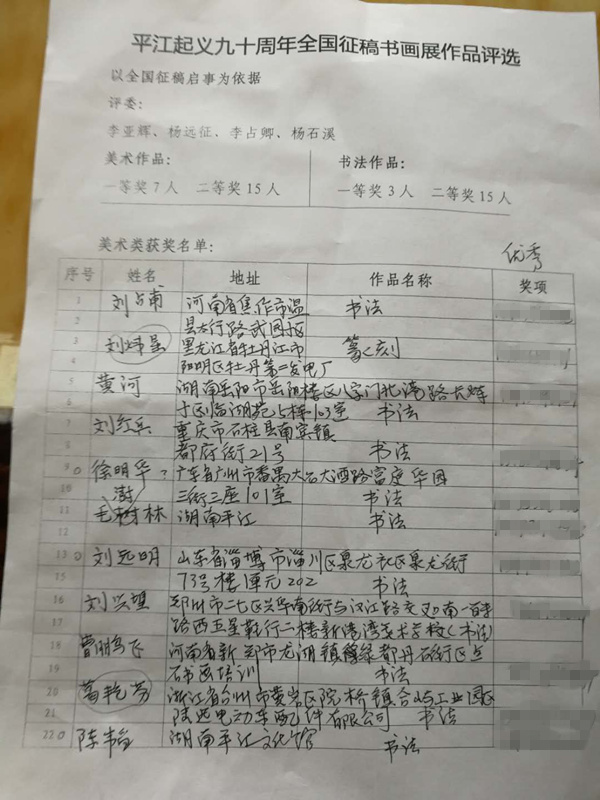 平江起义九十周年全国征稿书画展作品评选
以全国征稿启事为依据
评委:
李亚辉、杨远征、李占卿、杨石溪
美术作品: 书法作品:
一等奖7人 二等奖15人 一等奖3人 二等奖15人
美术类获奖名单: 优秀
序号 姓名 地址 作品名称 奖项
1 刘占甫 河南省焦作市温 书法
2 县太行路武园区
3 刘炜星 黑龙江省牡丹江市 篆刻
4 阳明区牡丹第二发电厂
5 黄河 湖南岳阳市岳阳楼区八字门北港路长辉
6 十区临湖苑七栋103室 书法
7 刘红兵 重庆市石柱县南宾镇
8 都府街21号 书法
9 徐明华? 广东省广州市番禺大石大酒路富庭华园
10 三街三座101室 书法
11 毛澍林 湖南平江 书法
12
13 刘远明 山东省淄博市淄川区泉龙社区泉龙街
15 73号楼1单元202 书法
16 刘兴望 郑州市二七区兴华南街与汉江路交叉口南一百米
17 路西五星鞋行二楼新港湾美术学校(书法)
18 曹鹏飞 河南省新郑市龙湖镇绿都丹石街区点
19 石书画培训 书法
20 葛艳芳 浙江省台州市黄岩区院桥镇合屿工业园区
21 陆远电动车配件有限公司 书法
22 陈韦 湖南平江文化馆 书法